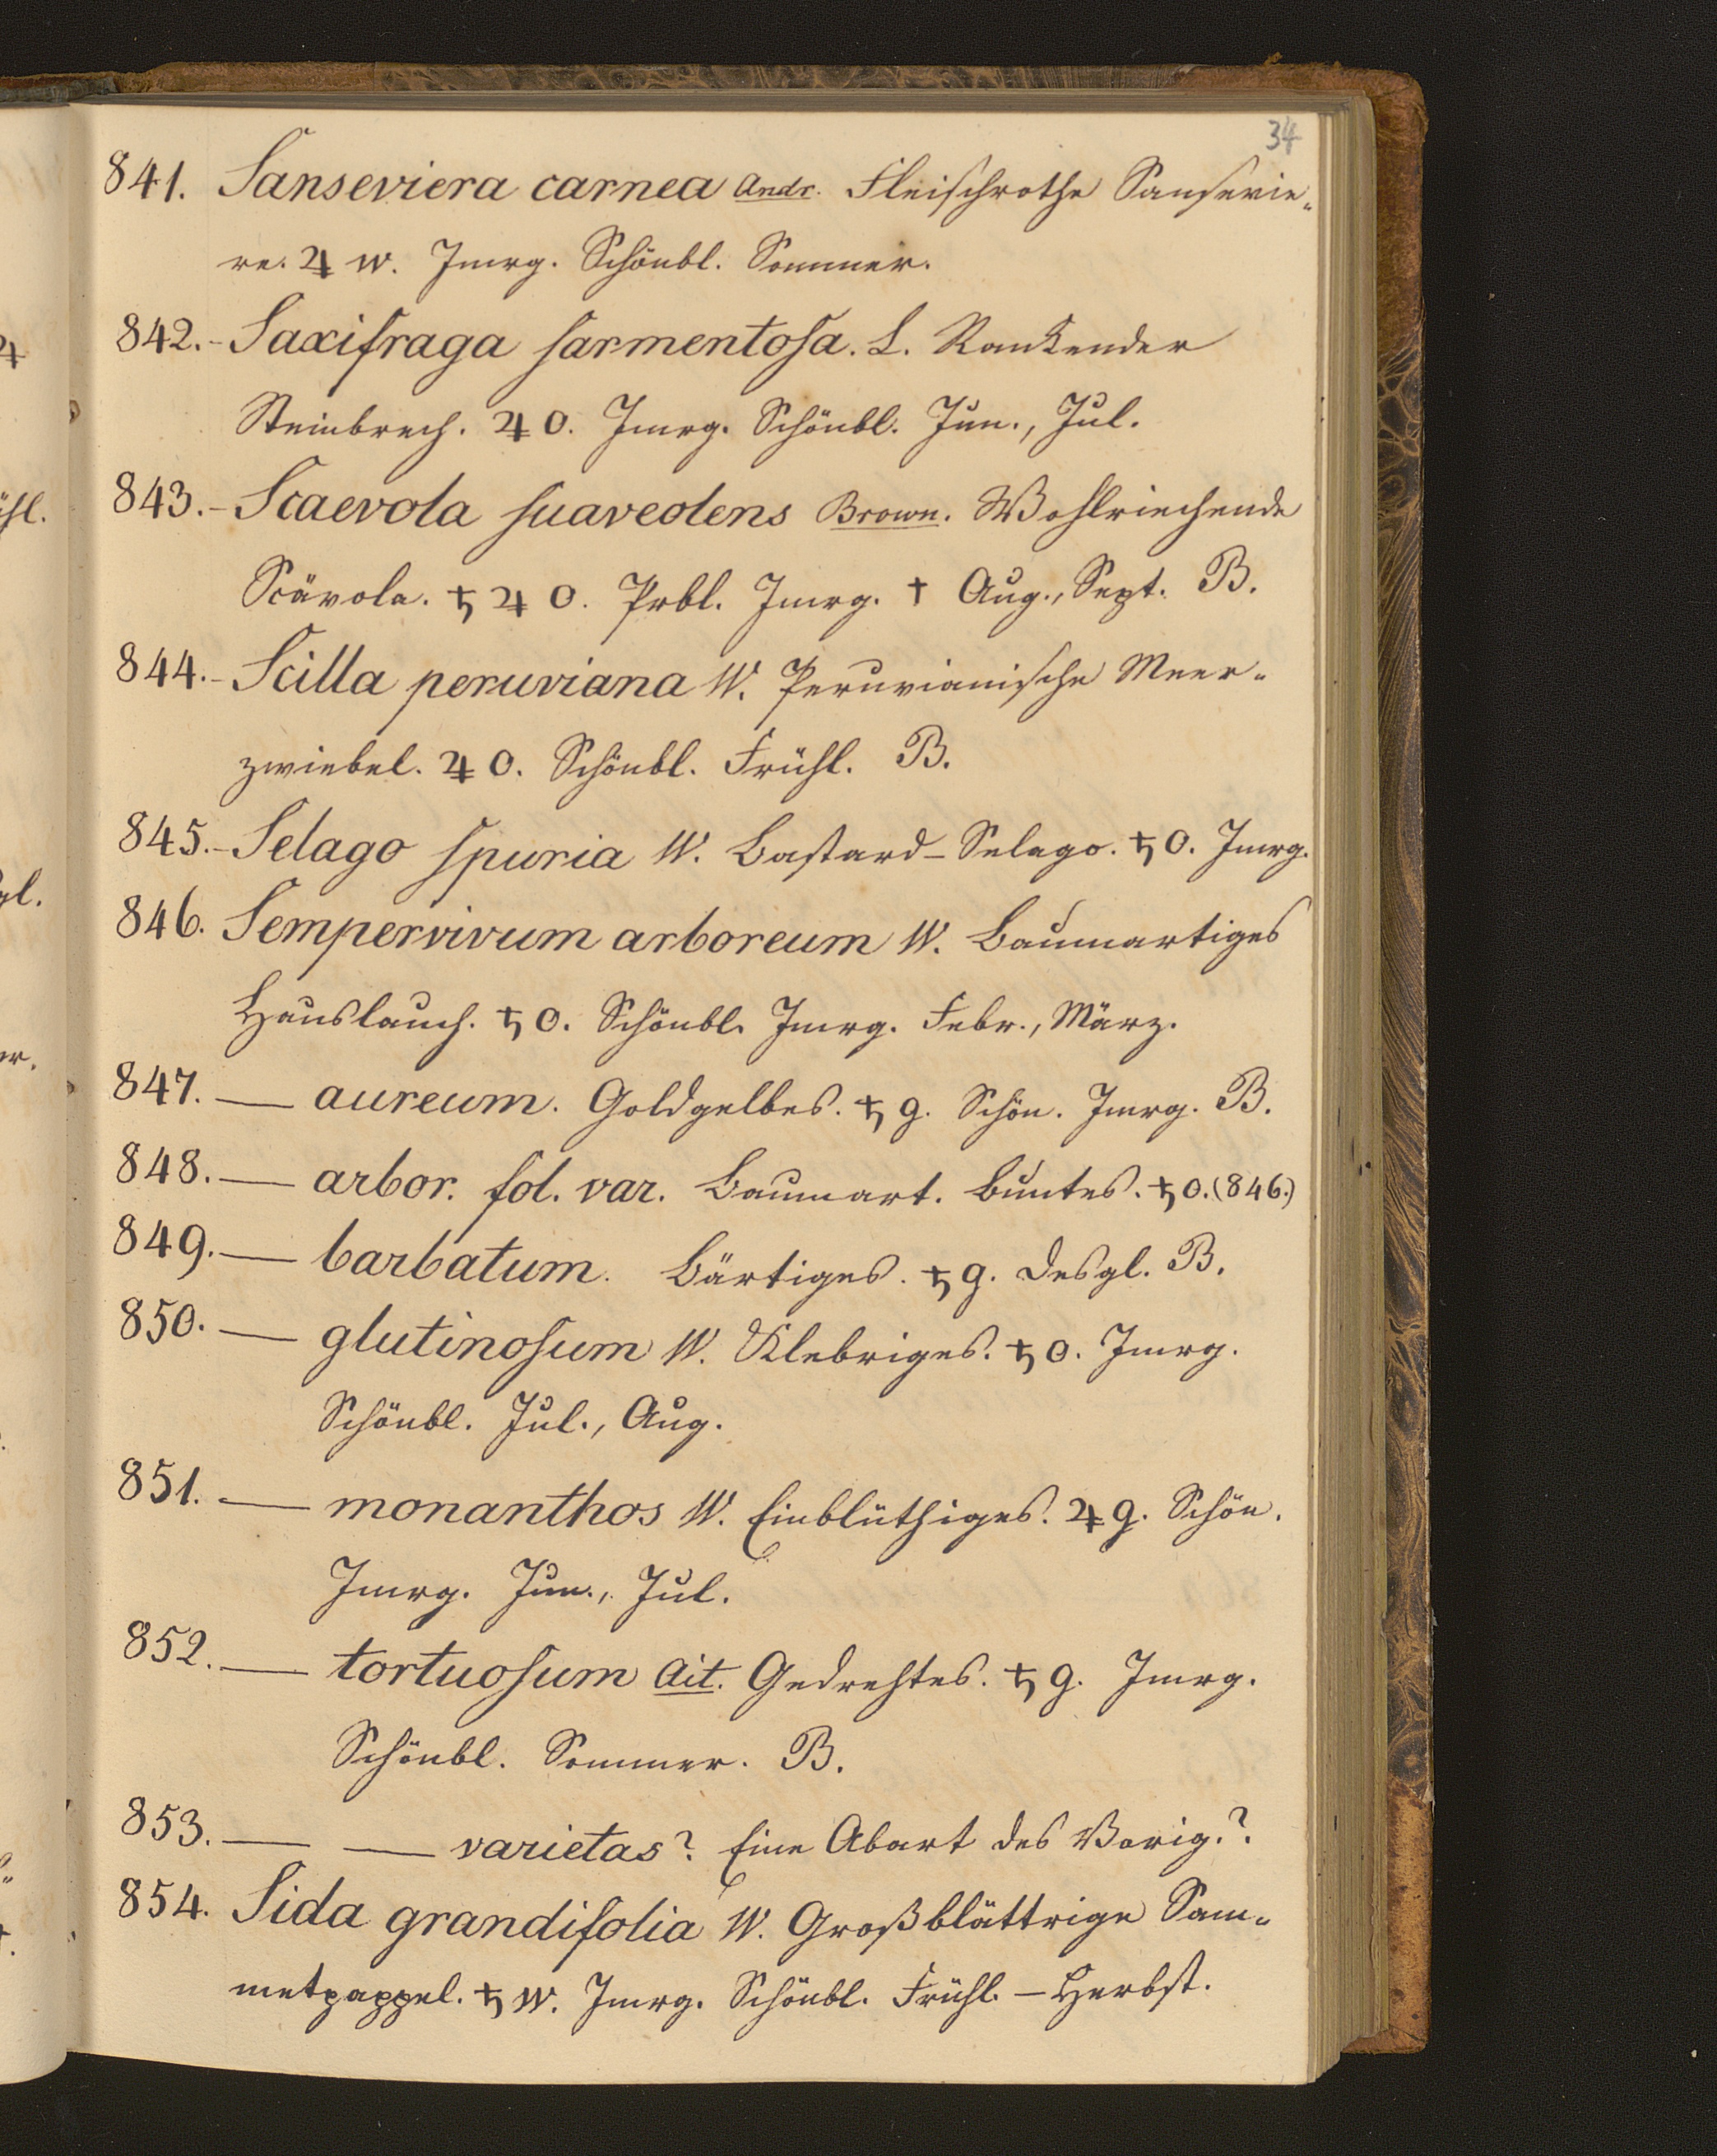 34
841. Sanseviera carnea Andr. Fleischrothe Sansevie-
re. ♃ w. Jmrg. Schönbl. Sommer.
842.- Saxifraga sarmentosa. L. Rankender
Steinbrech. ♃ o. Jmrg. Schönbl. Jun., Jul.
843.- Scaevola suaveolens Brown. Wohlriechende
Scävola. ♄ ♃ o. Prbl. Jmrg. † Aug., Sept. B.
844.- Scilla peruviana W. Peruvianische Meer-
zwiebel. ♃ o. Schönbl. Frühl. B.
845.- Selago spuria W. Bastard-Selago. ♄ o. Jmrg.
846. Sempervivum arboreum W. Baumartiges
Hauslauch. ♄ o. Schönbl. Jmrg. Febr., März.
847. — aureum. Goldgelbes. ♄ g. Schön. Jmrg. B.
848. — arbor. fol. var. Baumart. buntes. ♄ o. (846.)
849. — barbatum. Bärtiges. ♄ g. desgl. B.
850. — glutinosum W. Klebriges. ♄ o. Jmrg.
Schönbl. Jul., Aug.
851. — monanthos W. Einblüthiges. ♃ g. Schön.
Jmrg. Jun., Jul.
852. — tortuosum Ait. Gedrehtes. ♄ g. Jmrg.
Schönbl. Sommer. B.
853. — — varietas? Eine Abart des Vorig.?
854. Sida grandifolia W. Großblättrige Sam-
metpappel. ♄ w. Jmrg. Schönbl. Frühl. – Herbst.